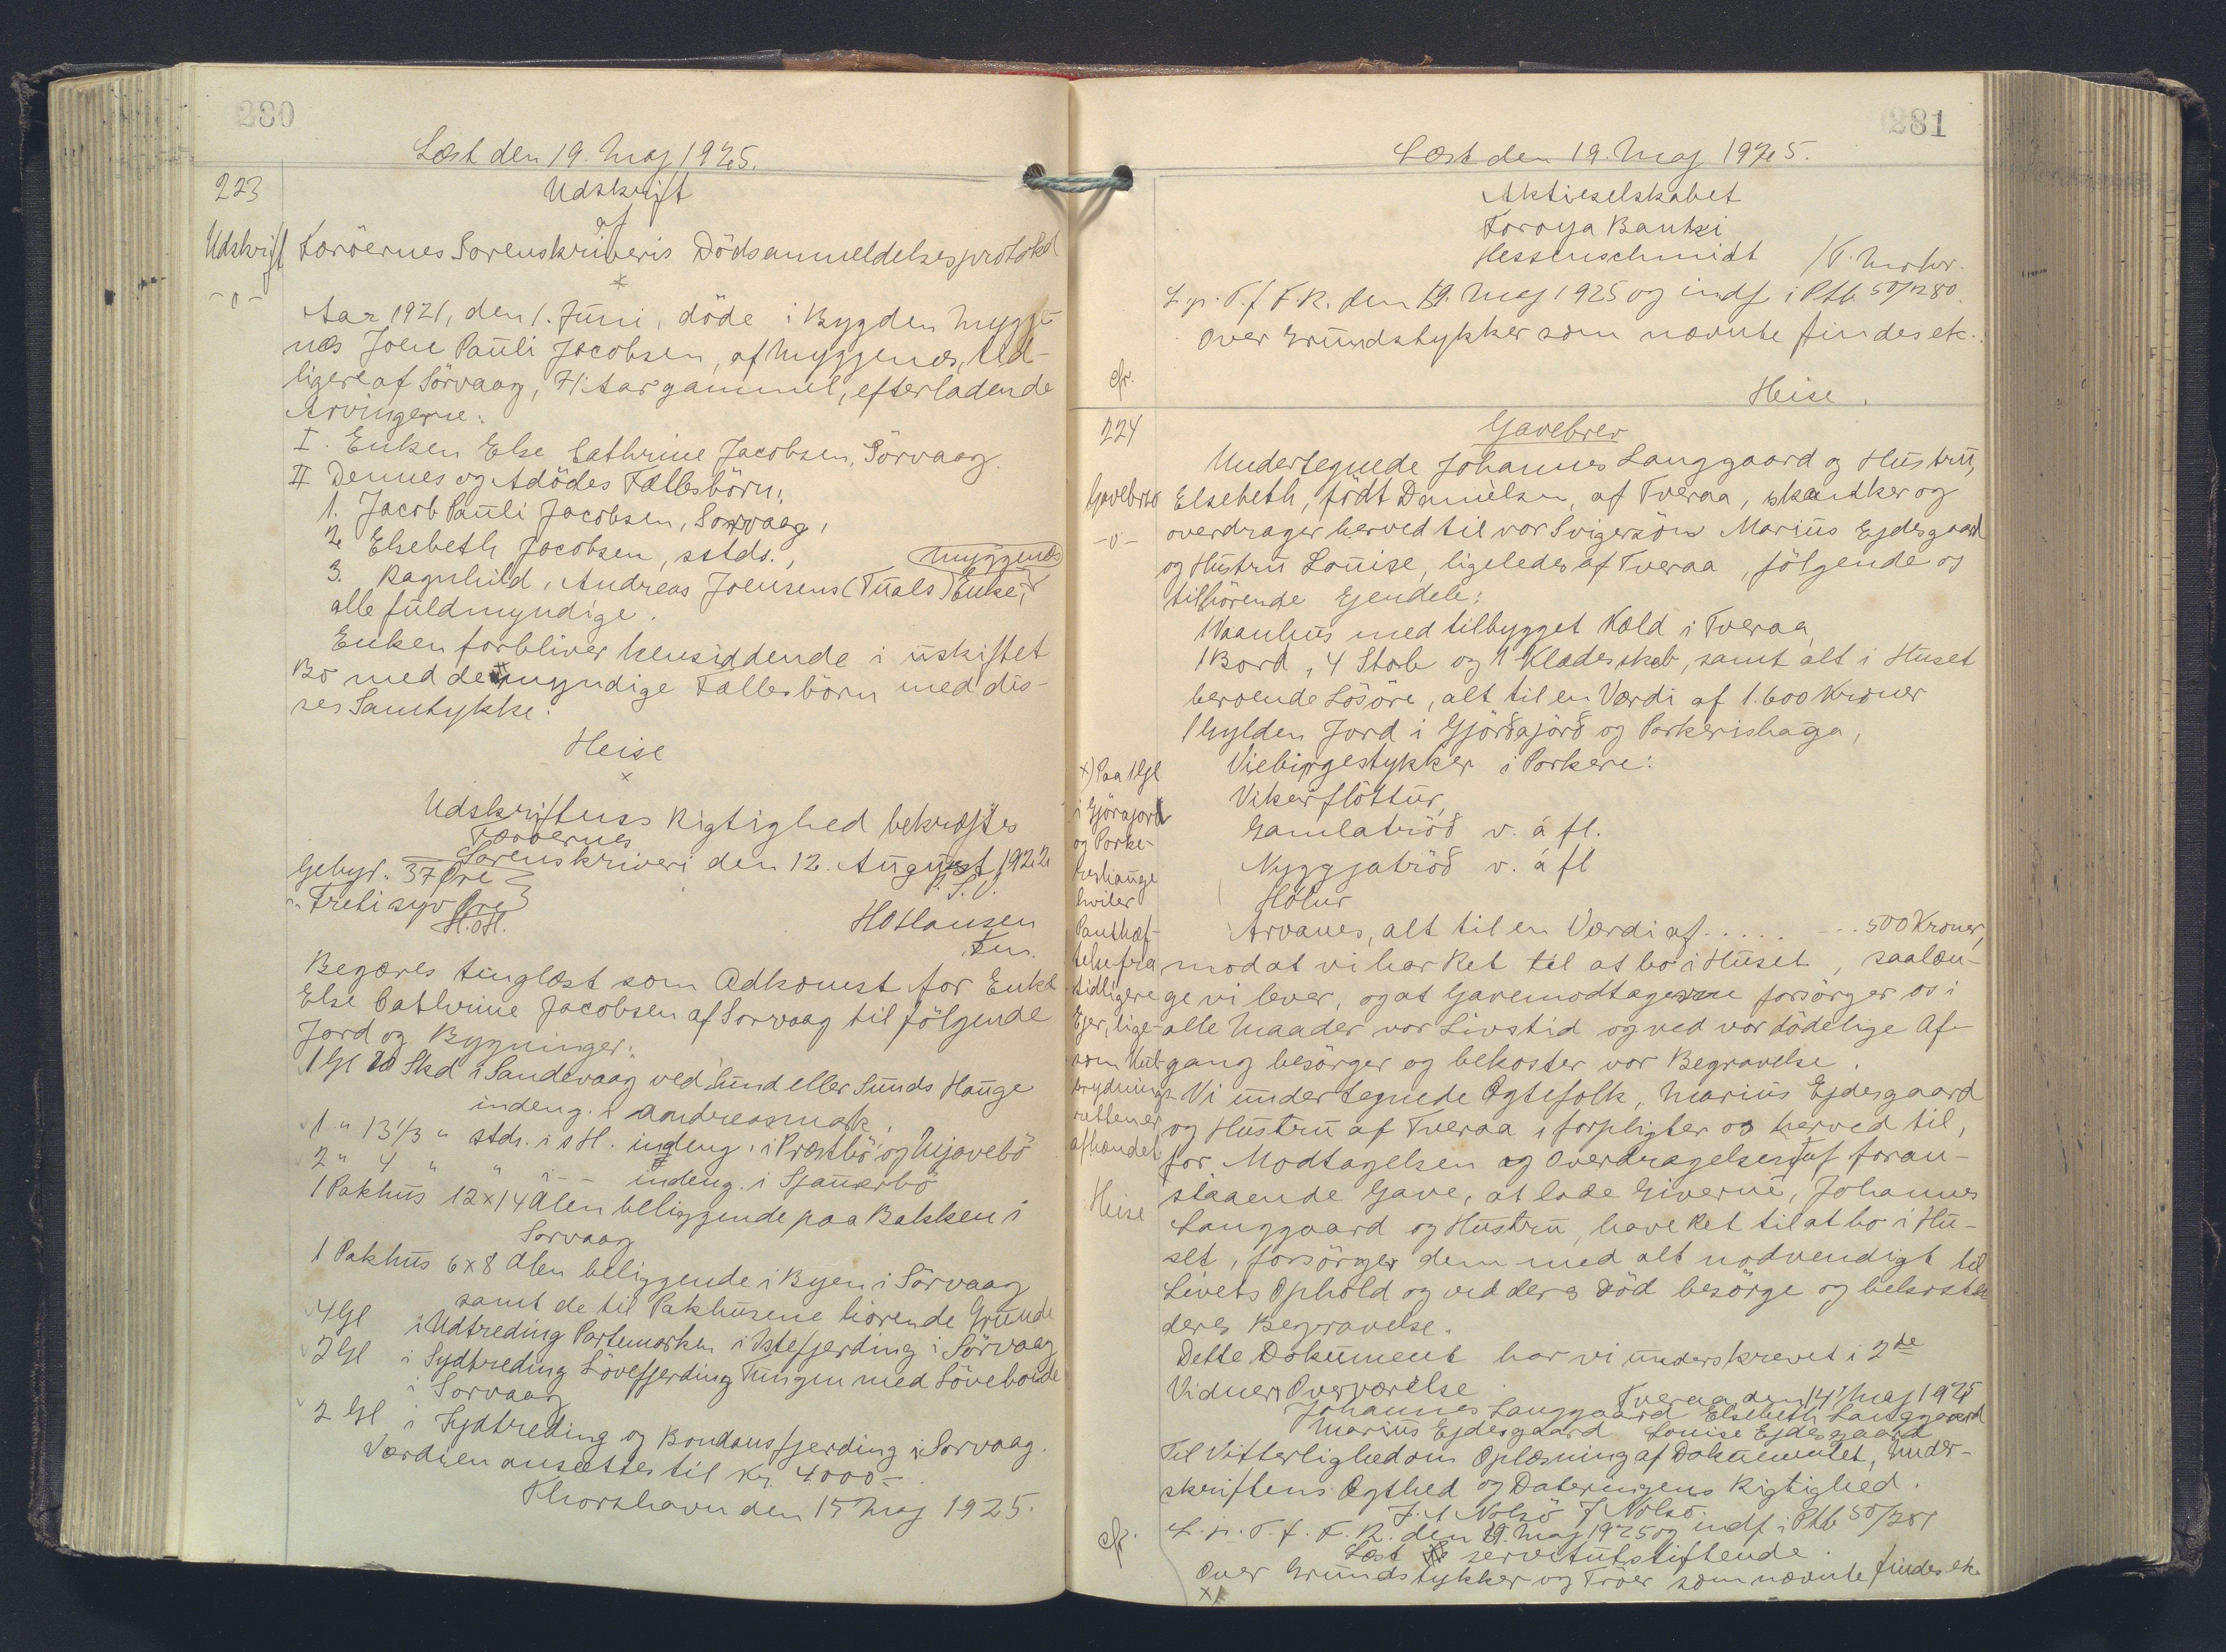 280
Læst den 19. Maj 1925.
223
Udskrift
af
Udskrift
Færöernes Sorenskriveris Dödsanmeldelsesprotokol
-0-
Aar 1921, den 1. Juni, döde i Bygden Mygge-
næs Joen Pauli Jacobsen, af Myggenæs, tid-
ligere af Sörvaag, 71 Aar gammel, efterladende
Arvingerne:
I. Enken Else Cathrine Jacobsen, Sörvaag.
II Dennes og Afdödes Fællesbörn:
1. Jacob Pauli Jacobsen, Sorvaag,
2 Elsebeth Jacobsen, sstds.,
3. Ragnhild, Andreas Joensens (Tuals) Enke, Myggenæs
alle fuldmyndige.
Enken forbliver hensiddende i uskiftet
Bo med de myndige Fællesbörn med dis-
ses Samtykke.
Heise
x
Udskriftens Rigtighed bekræftes
Færöernes
Sorenskriveri den 12. August 1922
Gebyr. 37 Øre
P. S. V.
Tretisyv Øre
H.O.H.
HOHansen
Fm.
Begæres tinglæst som Adkomst for Enke
Else Cathrine Jacobsen af Sorvaag til følgende
Jord og Bygninger:
1 Gl 10 Skd i Sandevaag ved Sund eller Sunds Hauge
indeng. i Andreasmark,
1 " 13 1/3 " stds. i s H. indeng. i Præstbö og Ujavebö
2 " 4 " " - - indeng. i Sjauerbö
1 Pakhus 12 x 14 Alen beliggende paa Bakken i
Sorvaag
1 Pakhus 6 x 8 Alen beliggende i Byen i Sörvaag
samt de til Pakhusene hörende Grunde
4 Gl i Udtreding Partemarken i Østefjerding i Sörvaag
2 Gl i Sydtreding Lövefjerding Tungen med Löveboide
i Sorvaag
2 Gl i Sydtreding og Bondausfjerding i Sorvaag.
Værdien ansættes til Kr. 4000-
Thorshavn den 15 Maj 1925.
281
Læst den 19. Maj 1925.
Aktieselskabet
Foroya Banki
Hessenschmidt / T. Mohr.
L. p. T. f. F. R. den 19. Maj 1925 og indf i Ptb. 50/280.
Over Grundstykker som nævnte findes ek.
cfr.
Heise.
224
Gavebrev
Undertegnede Johannes Langgaard og Hustru,
Gavebrev
Elsebeth, födt Danielsen, af Tveraa, skænker og
-0-
overdrager herved til vor Svigersön Marius Ejdesgaard
og Hustru Louise, ligeledes af Tveraa, fölgende os
tilhörende Ejendele:
1 Vaanhus med tilbygget Kæld i Tveraa,
1 Bord, 4 Stole og 1 Klædeskab, samt alt i Huset
beroende Lösöre, alt til en Værdi af 1.600 Kroner
1 Gylden Jord i Gjörðajörð og Porkerishaga,
Viebingestykker i Porkere:
Vikerflöttur,
Gamlatröð v. á fl.
Nyggjatröð v. á fl
Hölur
Arvanes, alt til en Værdi af . . . . . . . . 500 Kroner,
mod at vi har Ret til at bo i Huset, saalæn-
ge vi lever, og at Gavemodtagerne forsörger os i
alle Maader vor Livstid og ved vor dödelige Af-
gang besörger og bekoster vor Begravelse.
Vi undertegnede Ægtefolk, Marius Ejdesgaard
og Hustru af Tveraa, forpligter os herved til,
for Modtagelsen og Overdragelsen af foran-
staaende Gave, at lade Giverne, Johannes
Langgaard og Hustru, have Ret til at bo i Hu-
set, forsörger dem med alt nödvendigt til
Livets Ophold og ved deres Död besörge og bekoste
deres Begravelse.
Dette Dokument har vi underskrevet i 2de
Vidners Overværelse
Tveraa den 14' Maj 1925
Johannes Langgaard Elsebeth Langgaard
Marius Ejdesgaard Louise Ejdesgaard
Til Vitterlighed om Oplæsning af Dokumentet, Under-
skriftens Ægthed og Dateringens Rigtighed.
J. A Nolsö J Nolsö.
L. p. T. f. F. R. den 19. Maj 1925 og indf i Ptb 50/281
cfr.
Læst servitutstiftende.
Over Grundstykker og Tröer som nævnte findes ek.
x)
x) Paa 1 Gl
i Gjörajord
og Porke-
reshauge
hviler
Panthæf-
telse fra
tidligere
Ejer, lige-
som Ud-
brydnings
rettener
afhændet
Heise